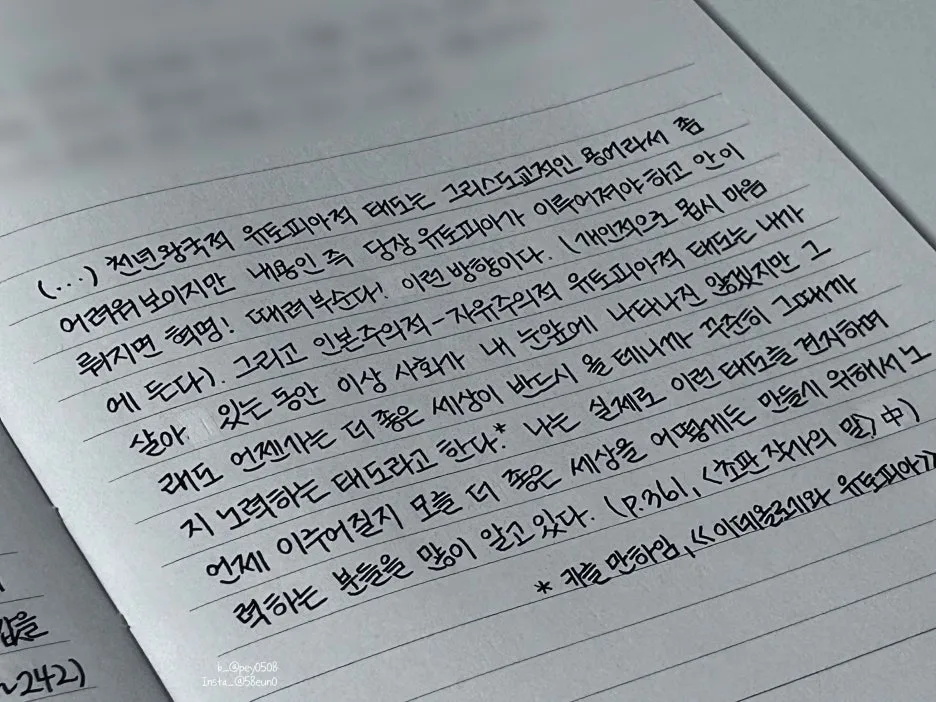 (...) 천년왕국적 유토피아적 태도는 그리스도교적인 용어라서 좀
어려워보이지만 내용인 즉 당장 유토피아가 이루어져야하고 안 이
뤄지면 혁명! 때려 부순다! 이런 방향이다. (개인적으로 몹시 마음
에 든다). 그리고 인본주의적-자유주의적 유토피아적 태도는 내가
살아 있는 동안 이상 사회가 내 눈앞에 나타나진 않겠지만 그
래도 언젠가는 더 좋은 세상이 반드시 올 테니까 꾸준히 그때까
지 노력하는 태도라고 한다.* 나는 실제로 이런 태도를 견지하며
언제 이루어질지 모를 더 좋은 세상을 어떻게든 만들기 위해서 노
력하는 분들을 많이 알고 있다. (p.361, <초판 작가의 말> 中)
* 카를 만하임, 《이데올로기와 유토피아》
갑을
~242)
b_@pey0508
Insta_@58eun0